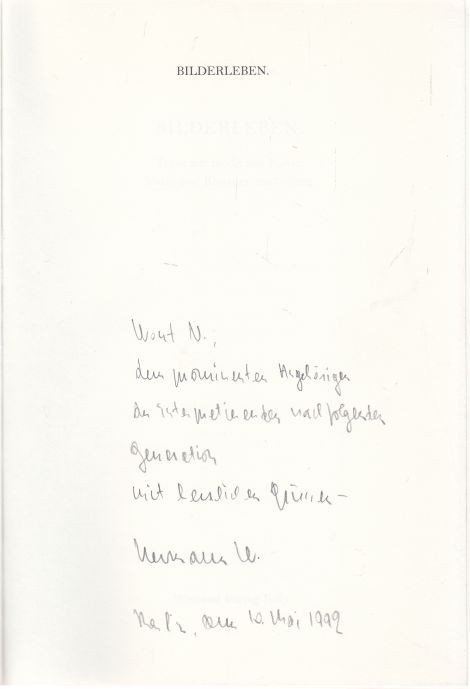 BILDERLEBEN.
N.,
dem prominenten Angehörigen
der interpretierenden nachfolgenden
Generation
mit herzlichen Grüssen –
Hermann
den 10. Mai 1999